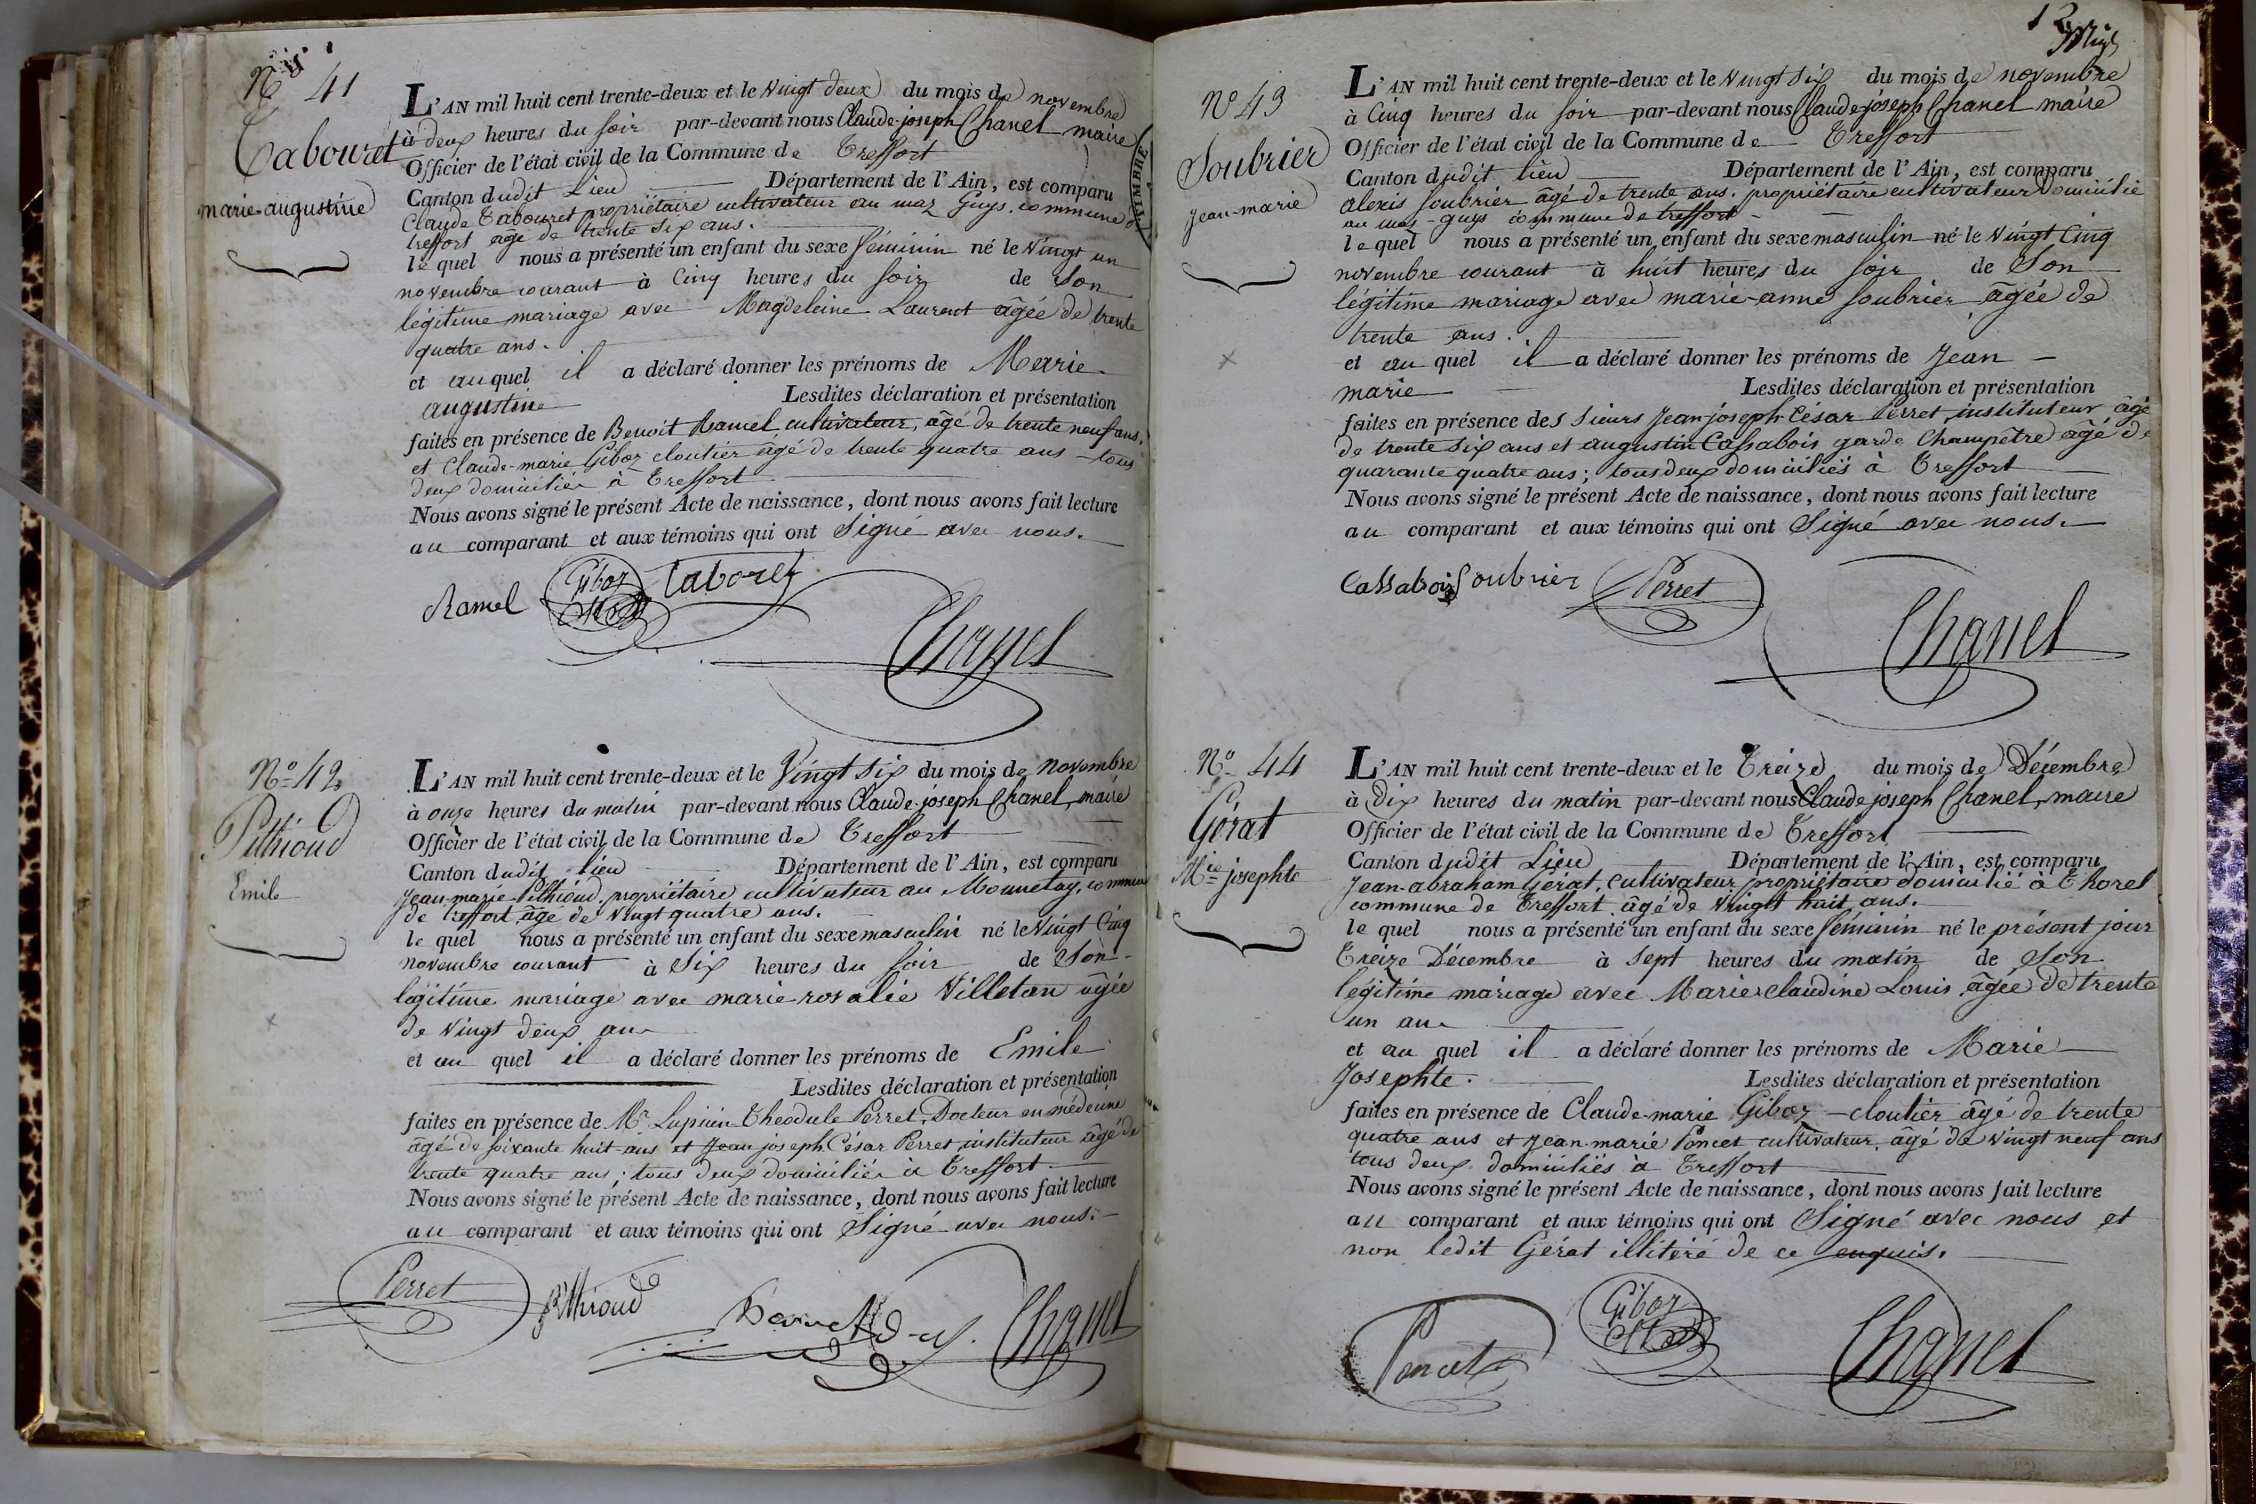 N° 41
Tabouret
marie-augustine
L'AN mil huit cent trente-deux et le vingt deux du mois de novembre
à deux heures du soir par-devant nous Claude-joseph Chanel maire
Officier de l'état civil de la Commune de Treffort
Canton dudit Lieu Département de l'Ain, est comparu
Claude Tabouret propriétaire cultivateur au maz Guys, commune de
treffort âgé de trente six ans.
le quel nous a présenté un enfant du sexe féminin né le vingt un
novembre courant à Cinq heures du soir de son
légitime mariage avec Magdeleine Laurent âgée de trente
quatre ans.
et auquel il a déclaré donner les prénoms de Marie
augustine Lesdites déclaration et présentation
faites en présence de Benoit Ramel cultivateur, âgé de trente neuf ans.
et Claude-marie Giboz cloutier âgé de trente quatre ans tous
deux domiciliés à Treffort
Nous avons signé le présent Acte de naissance, dont nous avons fait lecture
au comparant et aux témoins qui ont Signé avec nous.
Ramel Giboz Taboret
Chanel
TIMBRE
N° 42
Pithioud
Emile
L'AN mil huit cent trente-deux et le Vingt six du mois de novembre
à onze heures du matin par-devant nous Claude-joseph Chanel, maire
Officier de l'état civil de la Commune de Treffort
Canton dudit lieu Département de l'Ain, est comparu
Jean-marie Pithioud, propriétaire cultivateur au Monnetay, commune
de treffort âgé de vingt quatre ans.
le quel nous a présenté un enfant du sexe masculin né le vingt Cinq
novembre courant à six heures du soir de son
légitime mariage avec marie-rosalie Villetan âgée
de vingt deux ans
et au quel il a déclaré donner les prénoms de Emile
Lesdites déclaration et présentation
faites en présence de Mr Lupicin Theodule Perret, Docteur en médecine
âgé de soixante huit ans et Jean joseph César Perret instituteur âgé de
trente quatre ans; tous deux domiciliés à Treffort
Nous avons signé le présent Acte de naissance, dont nous avons fait lecture
au comparant et aux témoins qui ont Signé avec nous.
Perret Pithioud Chanel
12
N° 43
Soubrier
jean-marie
L'AN mil huit cent trente-deux et le vingt six du mois de novembre
à Cinq heures du soir par-devant nous Claude-joseph Chanel maire
Officier de l'état civil de la Commune de Treffort
Canton dudit lieu Département de l'Ain, est comparu
alexis soubrier âgé de trente ans, propriétaire cultivateur Domicilié
au mas-guys commune de treffort
le quel nous a présenté un enfant du sexe masculin né le vingt Cinq
novembre courant à huit heures du soir de Son
légitime mariage avec marie-anne soubrier âgée de
trente ans.
et au quel il a déclaré donner les prénoms de Jean
marie Lesdites déclaration et présentation
faites en présence des sieurs Jean joseph César Perret instituteur âgé
de trente six ans et augustin Cassabois garde Champêtre âgé de
quarante quatre ans; tous deux domiciliés à Treffort
Nous avons signé le présent Acte de naissance, dont nous avons fait lecture
au comparant et aux témoins qui ont Signé avec nous.
Cassabois Soubrier Perret
Chanel
N° 44
Gérat
Mie josephte
L'AN mil huit cent trente-deux et le Treize du mois de Décembre
à Dix heures du matin par-devant nous Claude joseph Chanel, maire
Officier de l'état civil de la Commune de Treffort
Canton dudit Lieu Département de l'Ain, est comparu
Jean-abraham Gérat, cultivateur propriétaire domicilié à Thorel
commune de Treffort âgé de vingt huit ans.
le quel nous a présenté un enfant du sexe féminin né le présent jour
Treize Décembre à sept heures du matin de son
légitime mariage avec Marie claudine Louis âgée de trente
un ans
et au quel il a déclaré donner les prénoms de Marie
Josephte. Lesdites déclaration et présentation
faites en présence de Claude-marie Giboz cloutier âgé de trente
quatre ans et jean-marie Poncet cultivateur âgé de vingt neuf ans
tous deux domiciliés à Treffort
Nous avons signé le présent Acte de naissance, dont nous avons fait lecture
au comparant et aux témoins qui ont Signé avec nous et
non ledit Gérat illitéré de ce enquis.
Poncet Giboz Chanel